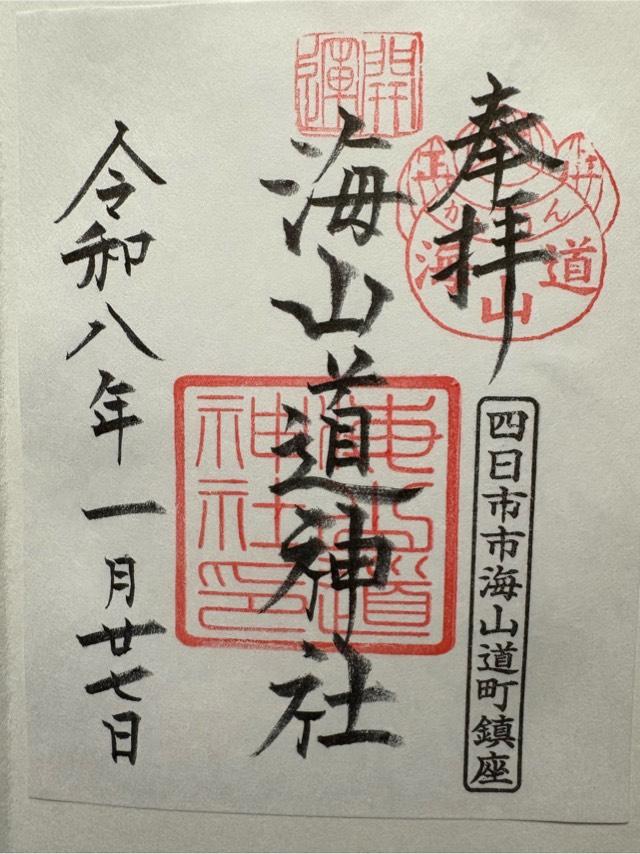 奉拝
四日市市海山道町鎮座
開運
海山道神社
海山道神社印
令和八年一月廿七日
海山道